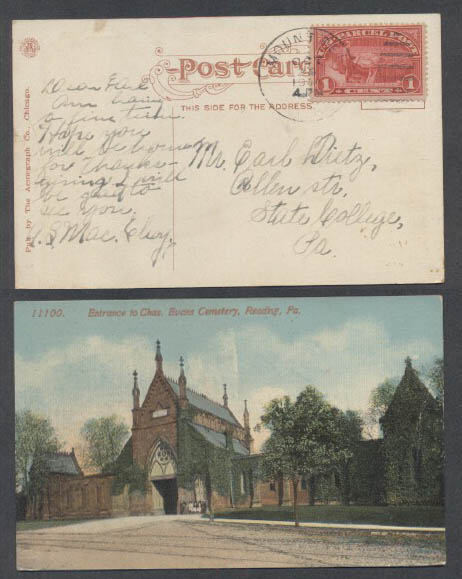 Post Card
THIS SIDE FOR THE ADDRESS
MOUNT
PARCEL POST
1 CENTS 1
Pub. by The Acmegraph Co., Chicago.
Dear
Am having
a fine time.
Hope you
will be home
for Thanks-
giving I will
be glad to
see you.
Mr. Earl Dietz,
Allen str.
State College,
Pa.
11100. Entrance to Chas. Evans Cemetery, Reading, Pa.